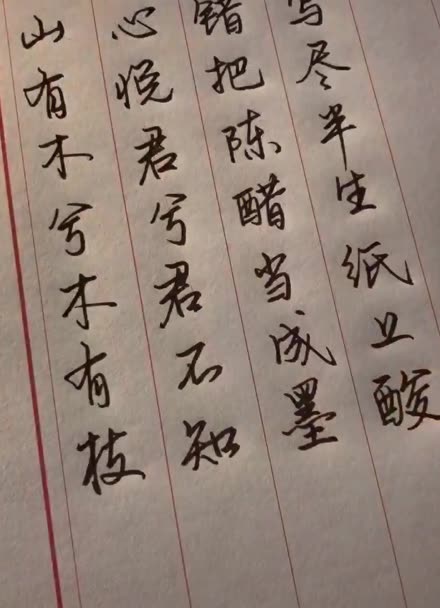 山有木兮木有枝
心悦君兮君不知
错把陈醋当成墨
写尽半生纸上酸